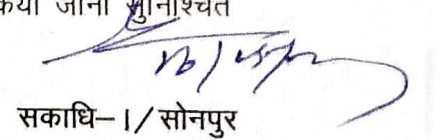 किया जाना सुनिश्चित
सकाधि–I/सोनपुर